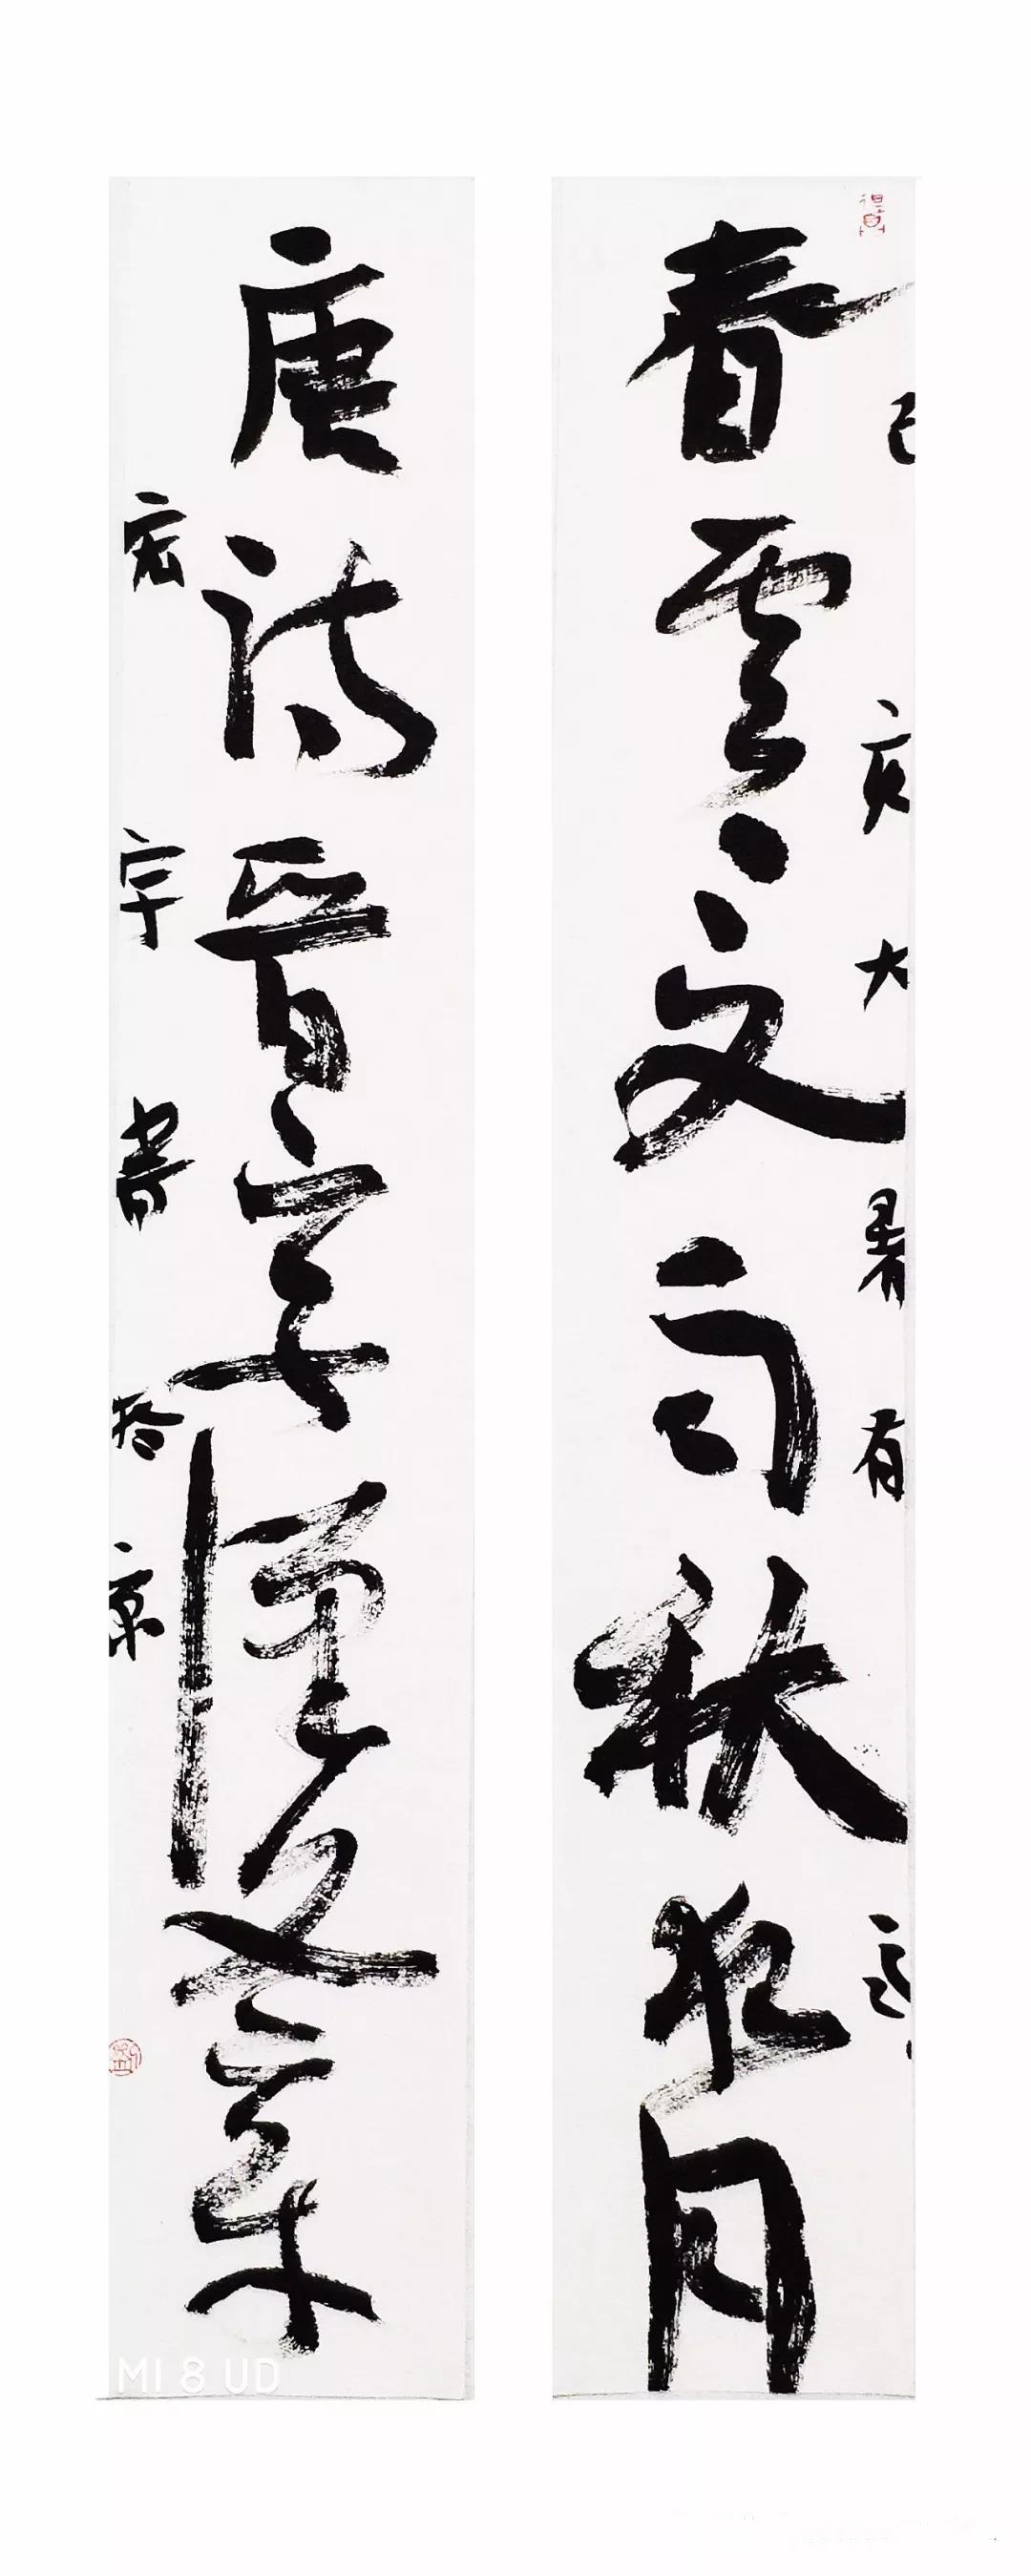 己亥大暑有
春雲夏雨秋夜月
唐詩晉字漢文章
宏宇書於京
MI 8 UD